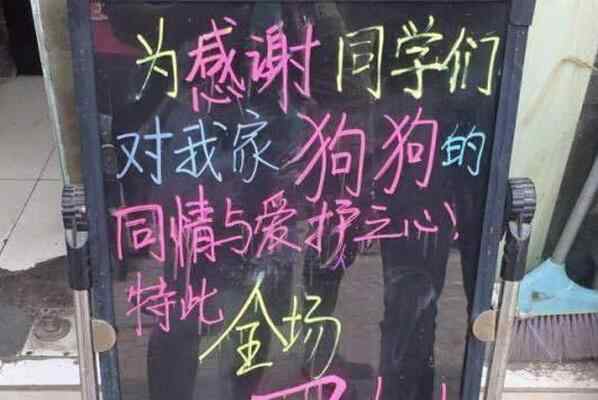 为感谢同学们
对我家狗狗的
同情与爱护之心！
特此全场